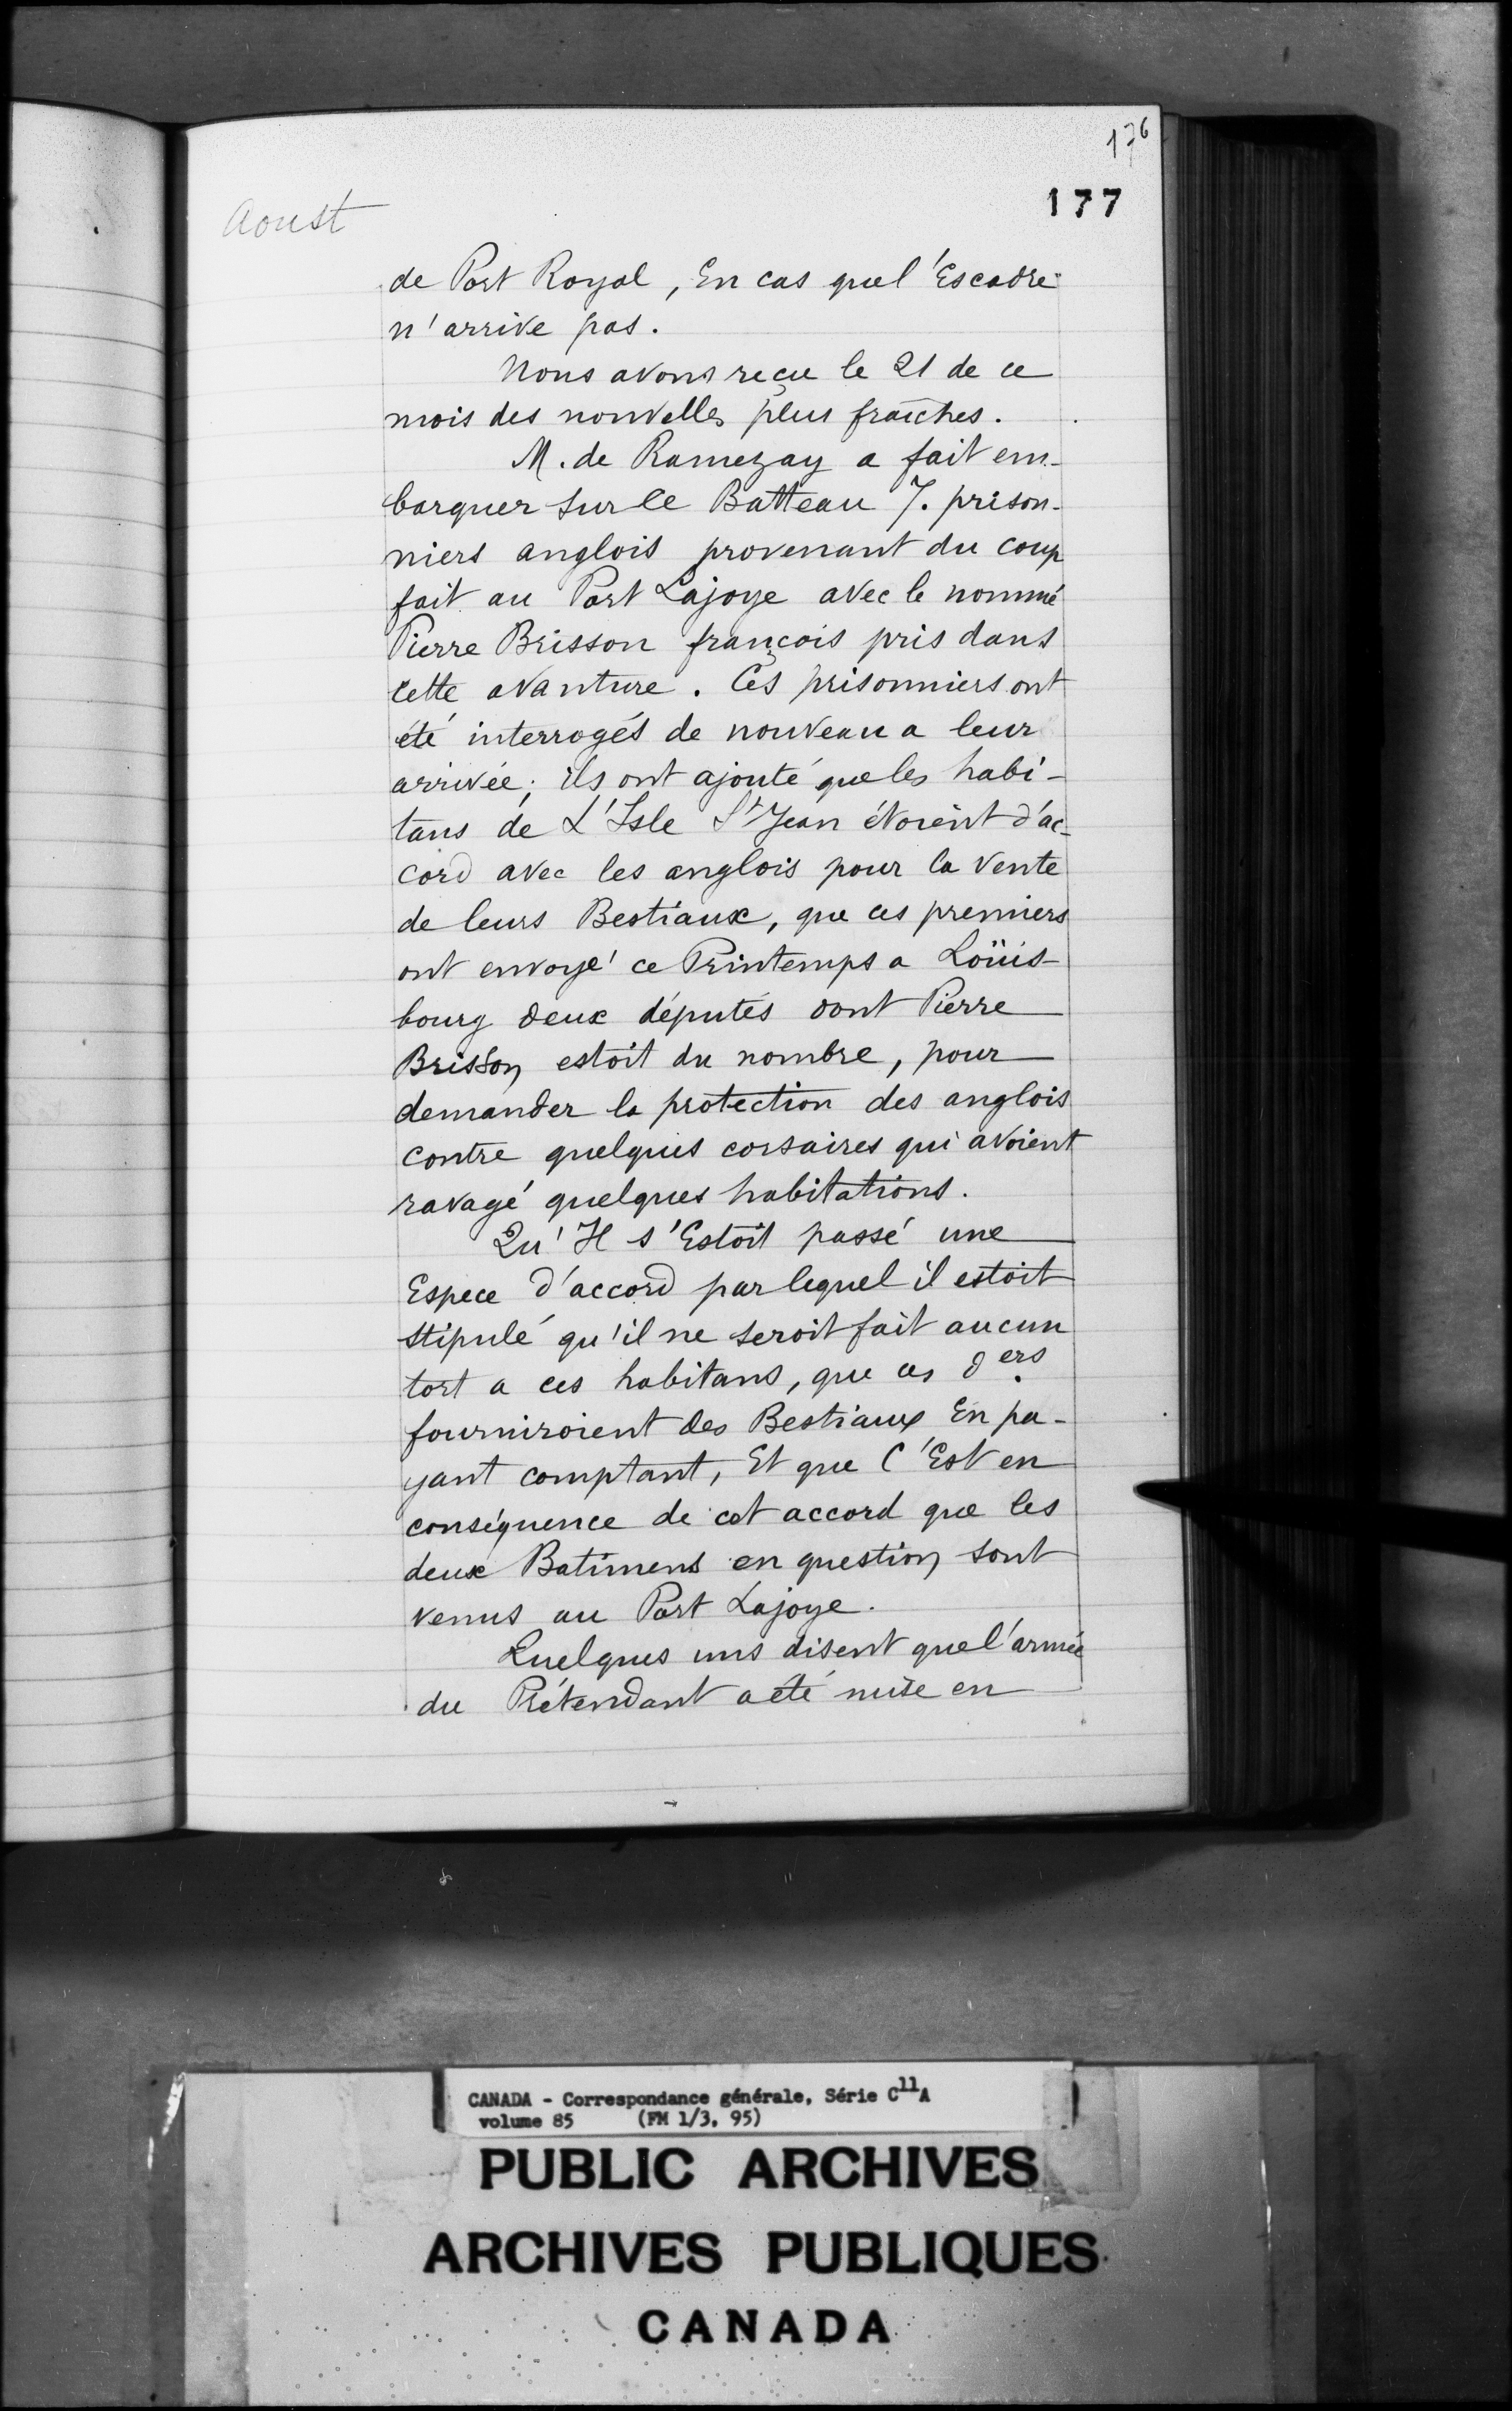 176
177
Aoust
de Port Royal, En cas quel'Escadre
n'arrive pas.
Nous avons reçue le 21 de ce
mois des nouvelles plus fraîches.
M. de Ramezay a fait em-
barquer sur le Batteau 7. prison-
niers anglois provenant du coup
fait au Port Lajoye avec le nommé
Pierre Brisson françois pris dans
cette avanture. Ces prisonniers ont
été interrogés de nouveau a leur
arrivée; ils ont ajouté que les habi-
tans de L'Isle St Jean étoient d'ac-
cord avec les anglois pour la vente
de leurs Bestiaux, que ces premiers
ont envoyé ce Printemps a Loüis-
bourg deux députés dont Pierre
Brisson estoit du nombre, pour
demander la protection des anglois
contre quelques corsaires qui avoient
ravagé quelques habitations.
Qu'Il s'Estoit passé une
Espece d'accord par lequel il estoit
stipulé qu'il ne seroit fait aucun
tort a ces habitans, que ces d.ers
fourniroient des Bestiaux En pa-
yant comptant, Et que C'Est en
conséquence de cet accord que les
deux Batimens en question sont
venus au Port Lajoye.
Quelques uns disent quel'armée
du Prétendant a été mise en
CANADA - Correspondance générale, Série C11A
volume 85 (FM 1/3, 95)
PUBLIC ARCHIVES
ARCHIVES PUBLIQUES
CANADA